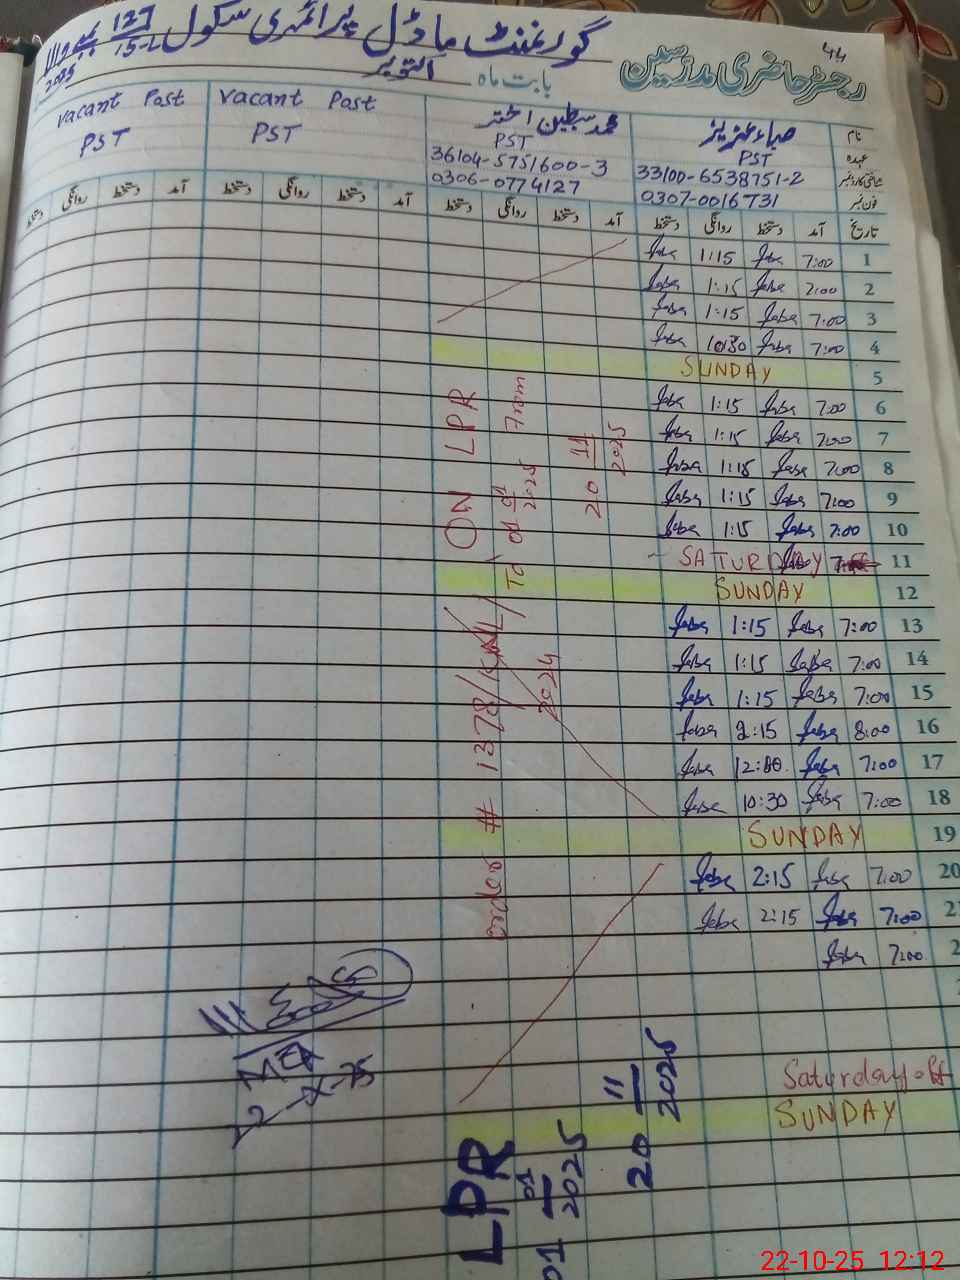 44
رجسٹر حاضری مدرسین
گورنمنٹ ماڈل پرائمری سکول 127/15-L
بابت ماہ اکتوبر 2025
نام صباء عزیز محمد سبطین اختر Vacant Post Vacant Post
عہدہ PST PST PST PST
شناختی کارڈ نمبر 33100-6538751-2 36104-5751600-3
فون نمبر 0307-0016731 0306-0774127
تاریخ آمد دستخط روانگی دستخط آمد دستخط روانگی دستخط آمد دستخط روانگی دستخط آمد دستخط روانگی دستخط
1 7:00 Saba 1:15 Saba
2 7:00 Saba 1:15 Saba
3 7:00 Saba 1:15 Saba
4 7:00 Saba 10:30 Saba
5 SUNDAY
6 7:00 Saba 1:15 Saba
7 7:00 Saba 1:15 Saba
8 7:00 Saba 1:15 Saba
9 7:00 Saba 1:15 Saba
10 7:00 Saba 1:15 Saba
11 SATURDAY
12 SUNDAY
13 7:00 Saba 1:15 Saba
14 7:00 Saba 1:15 Saba
15 7:00 Saba 1:15 Saba
16 8:00 Saba 2:15 Saba
17 7:00 Saba 12:00 Saba
18 7:00 Saba 10:30 Saba
19 SUNDAY
20 7:00 Saba 2:15 Saba
21 7:00 Saba 2:15 Saba
2 7:00 Saba
Saturday off
SUNDAY
order # 1378/ 2024 ON LPR
From 01 01 2025 To 20 11 2025
LPR
01 01 2025
20 11 2025
MEA
22-10-25 12:12